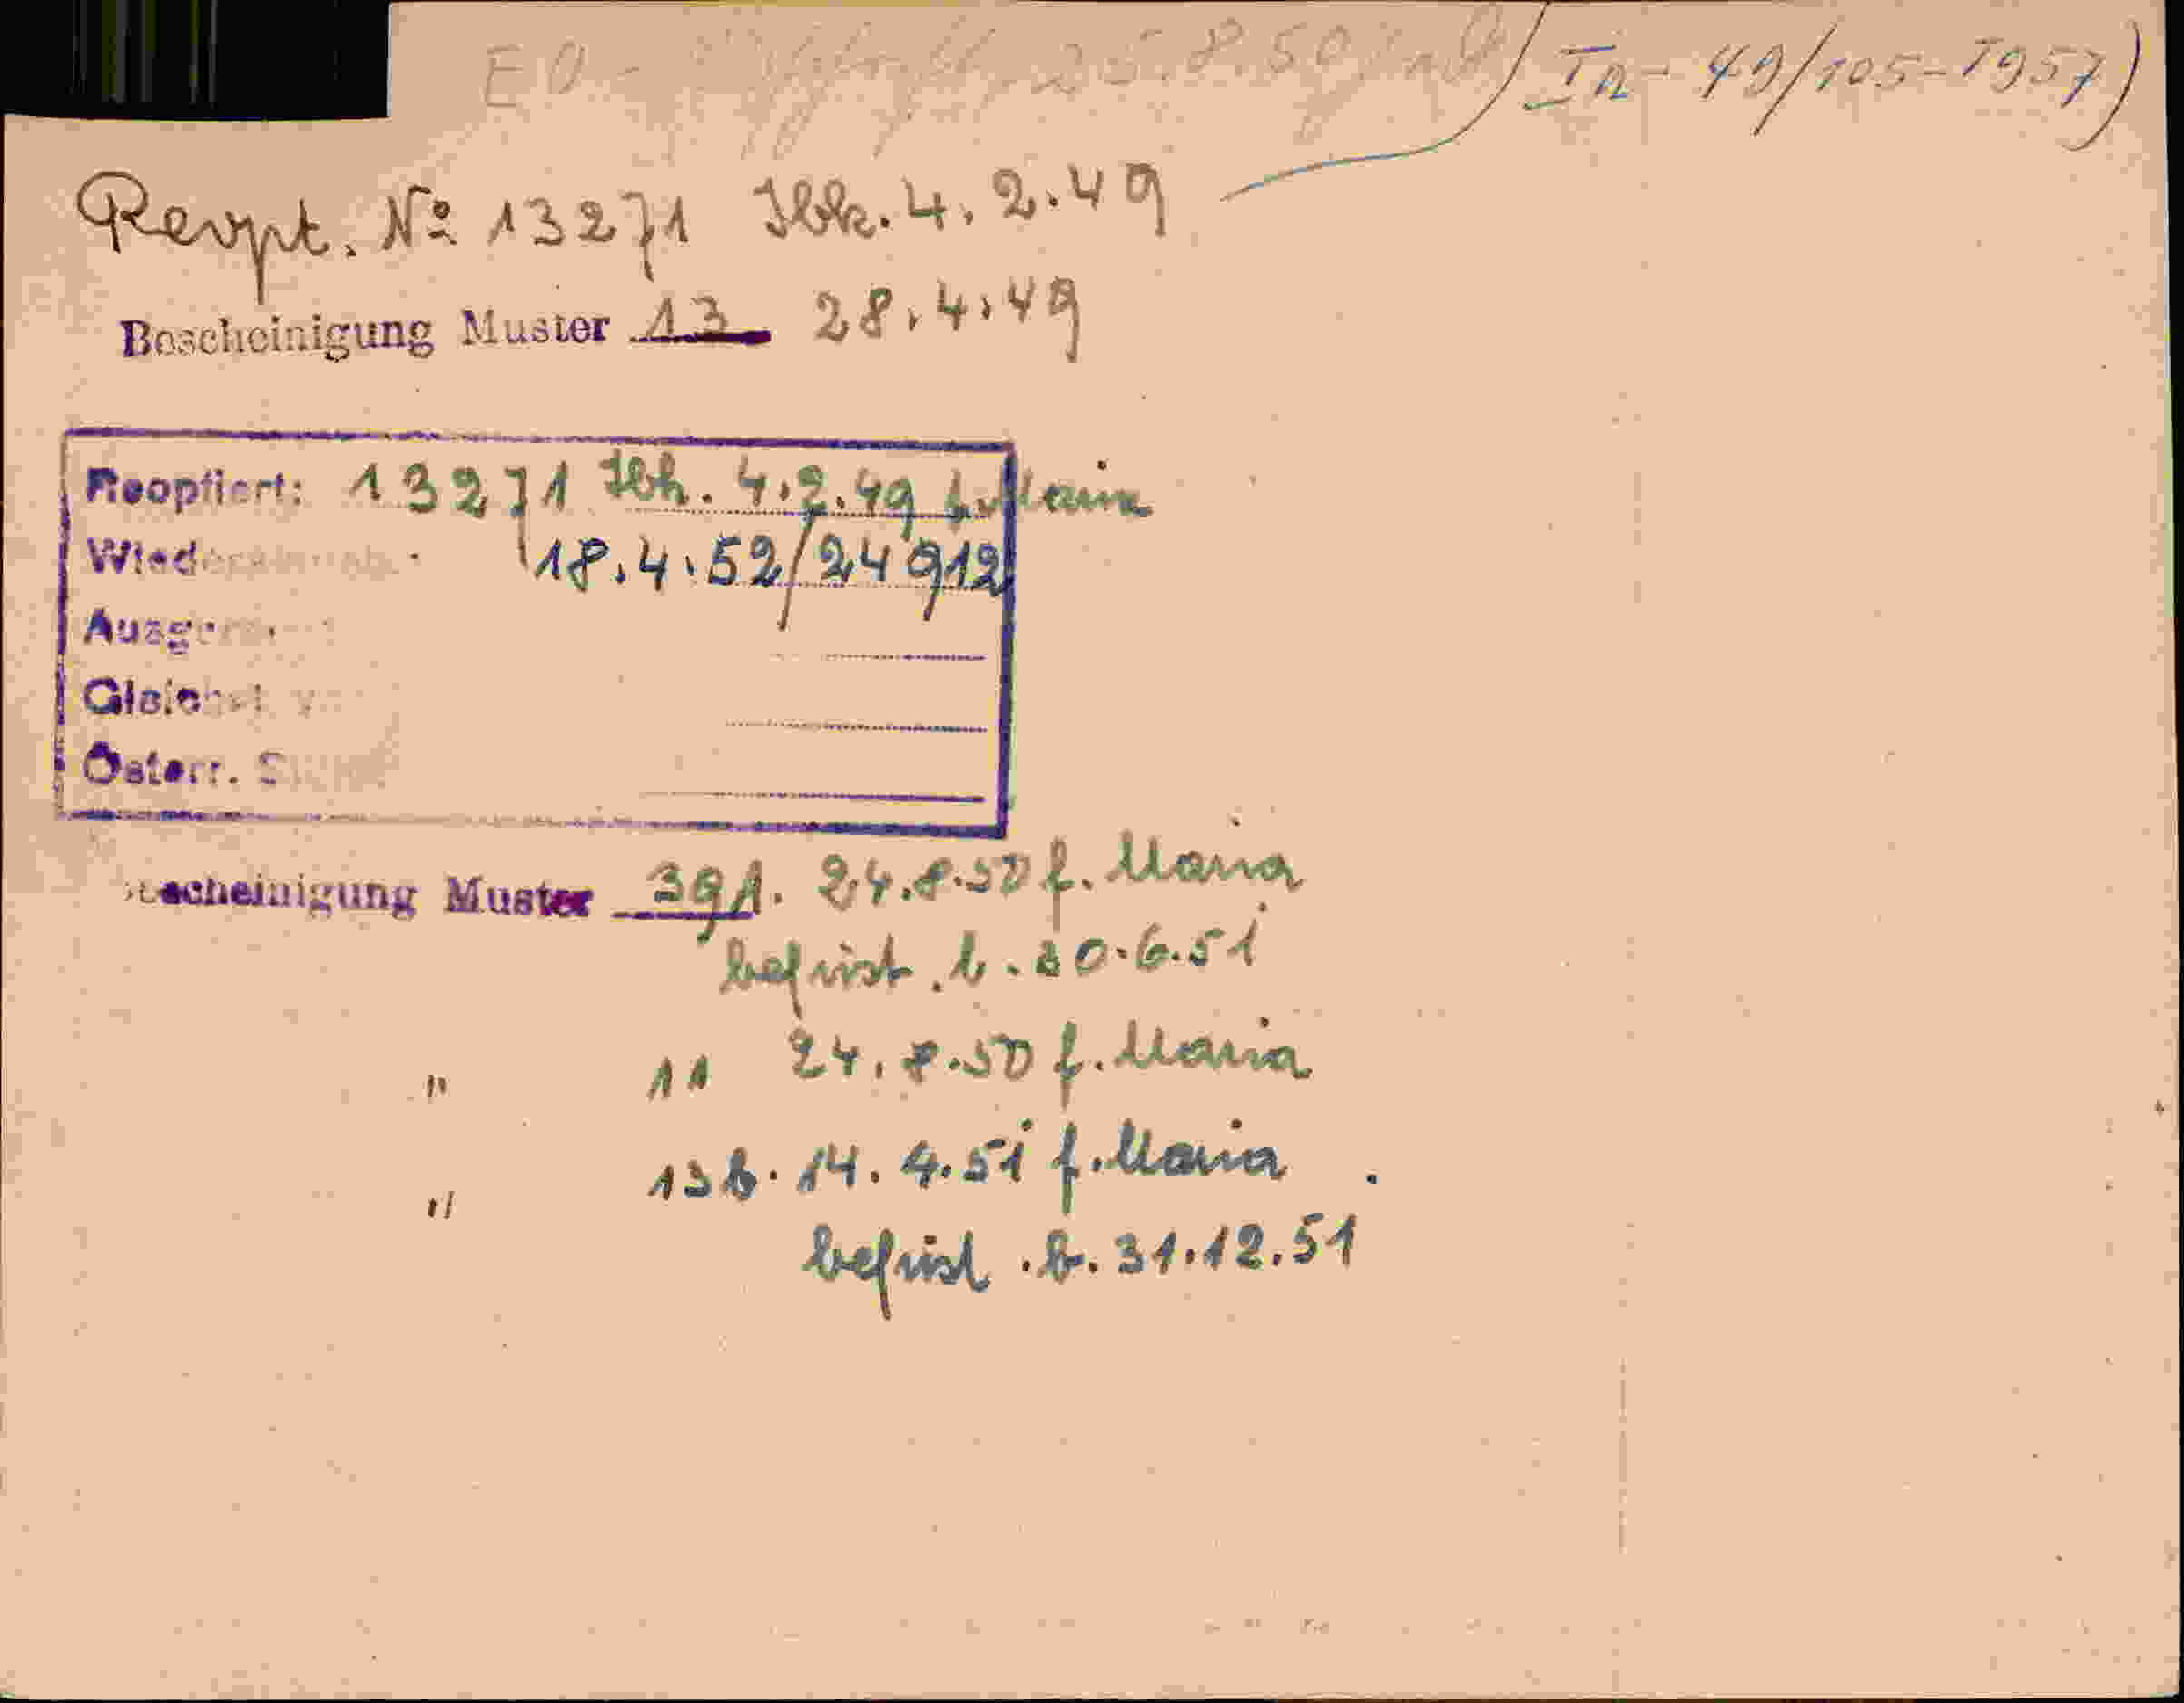 E O - 25.8.50
Ia - 49/105 - 1957)
Reopt. No 13271 Ibk. 4. 2. 49
Bescheinigung Muster 13 28. 4. 49
Reoptiert: 13271 Ibk. 4. 2. 49 f. Maria
18. 4. 52/24912
Österr.
Bescheinigung Muster 39A. 24. 8. 50 f. Maria
befrist. b. 30. 6. 51
" 11 24. 8. 50 f. Maria
" 13b. 14. 4. 51 f. Maria
befrist. b. 31. 12. 51